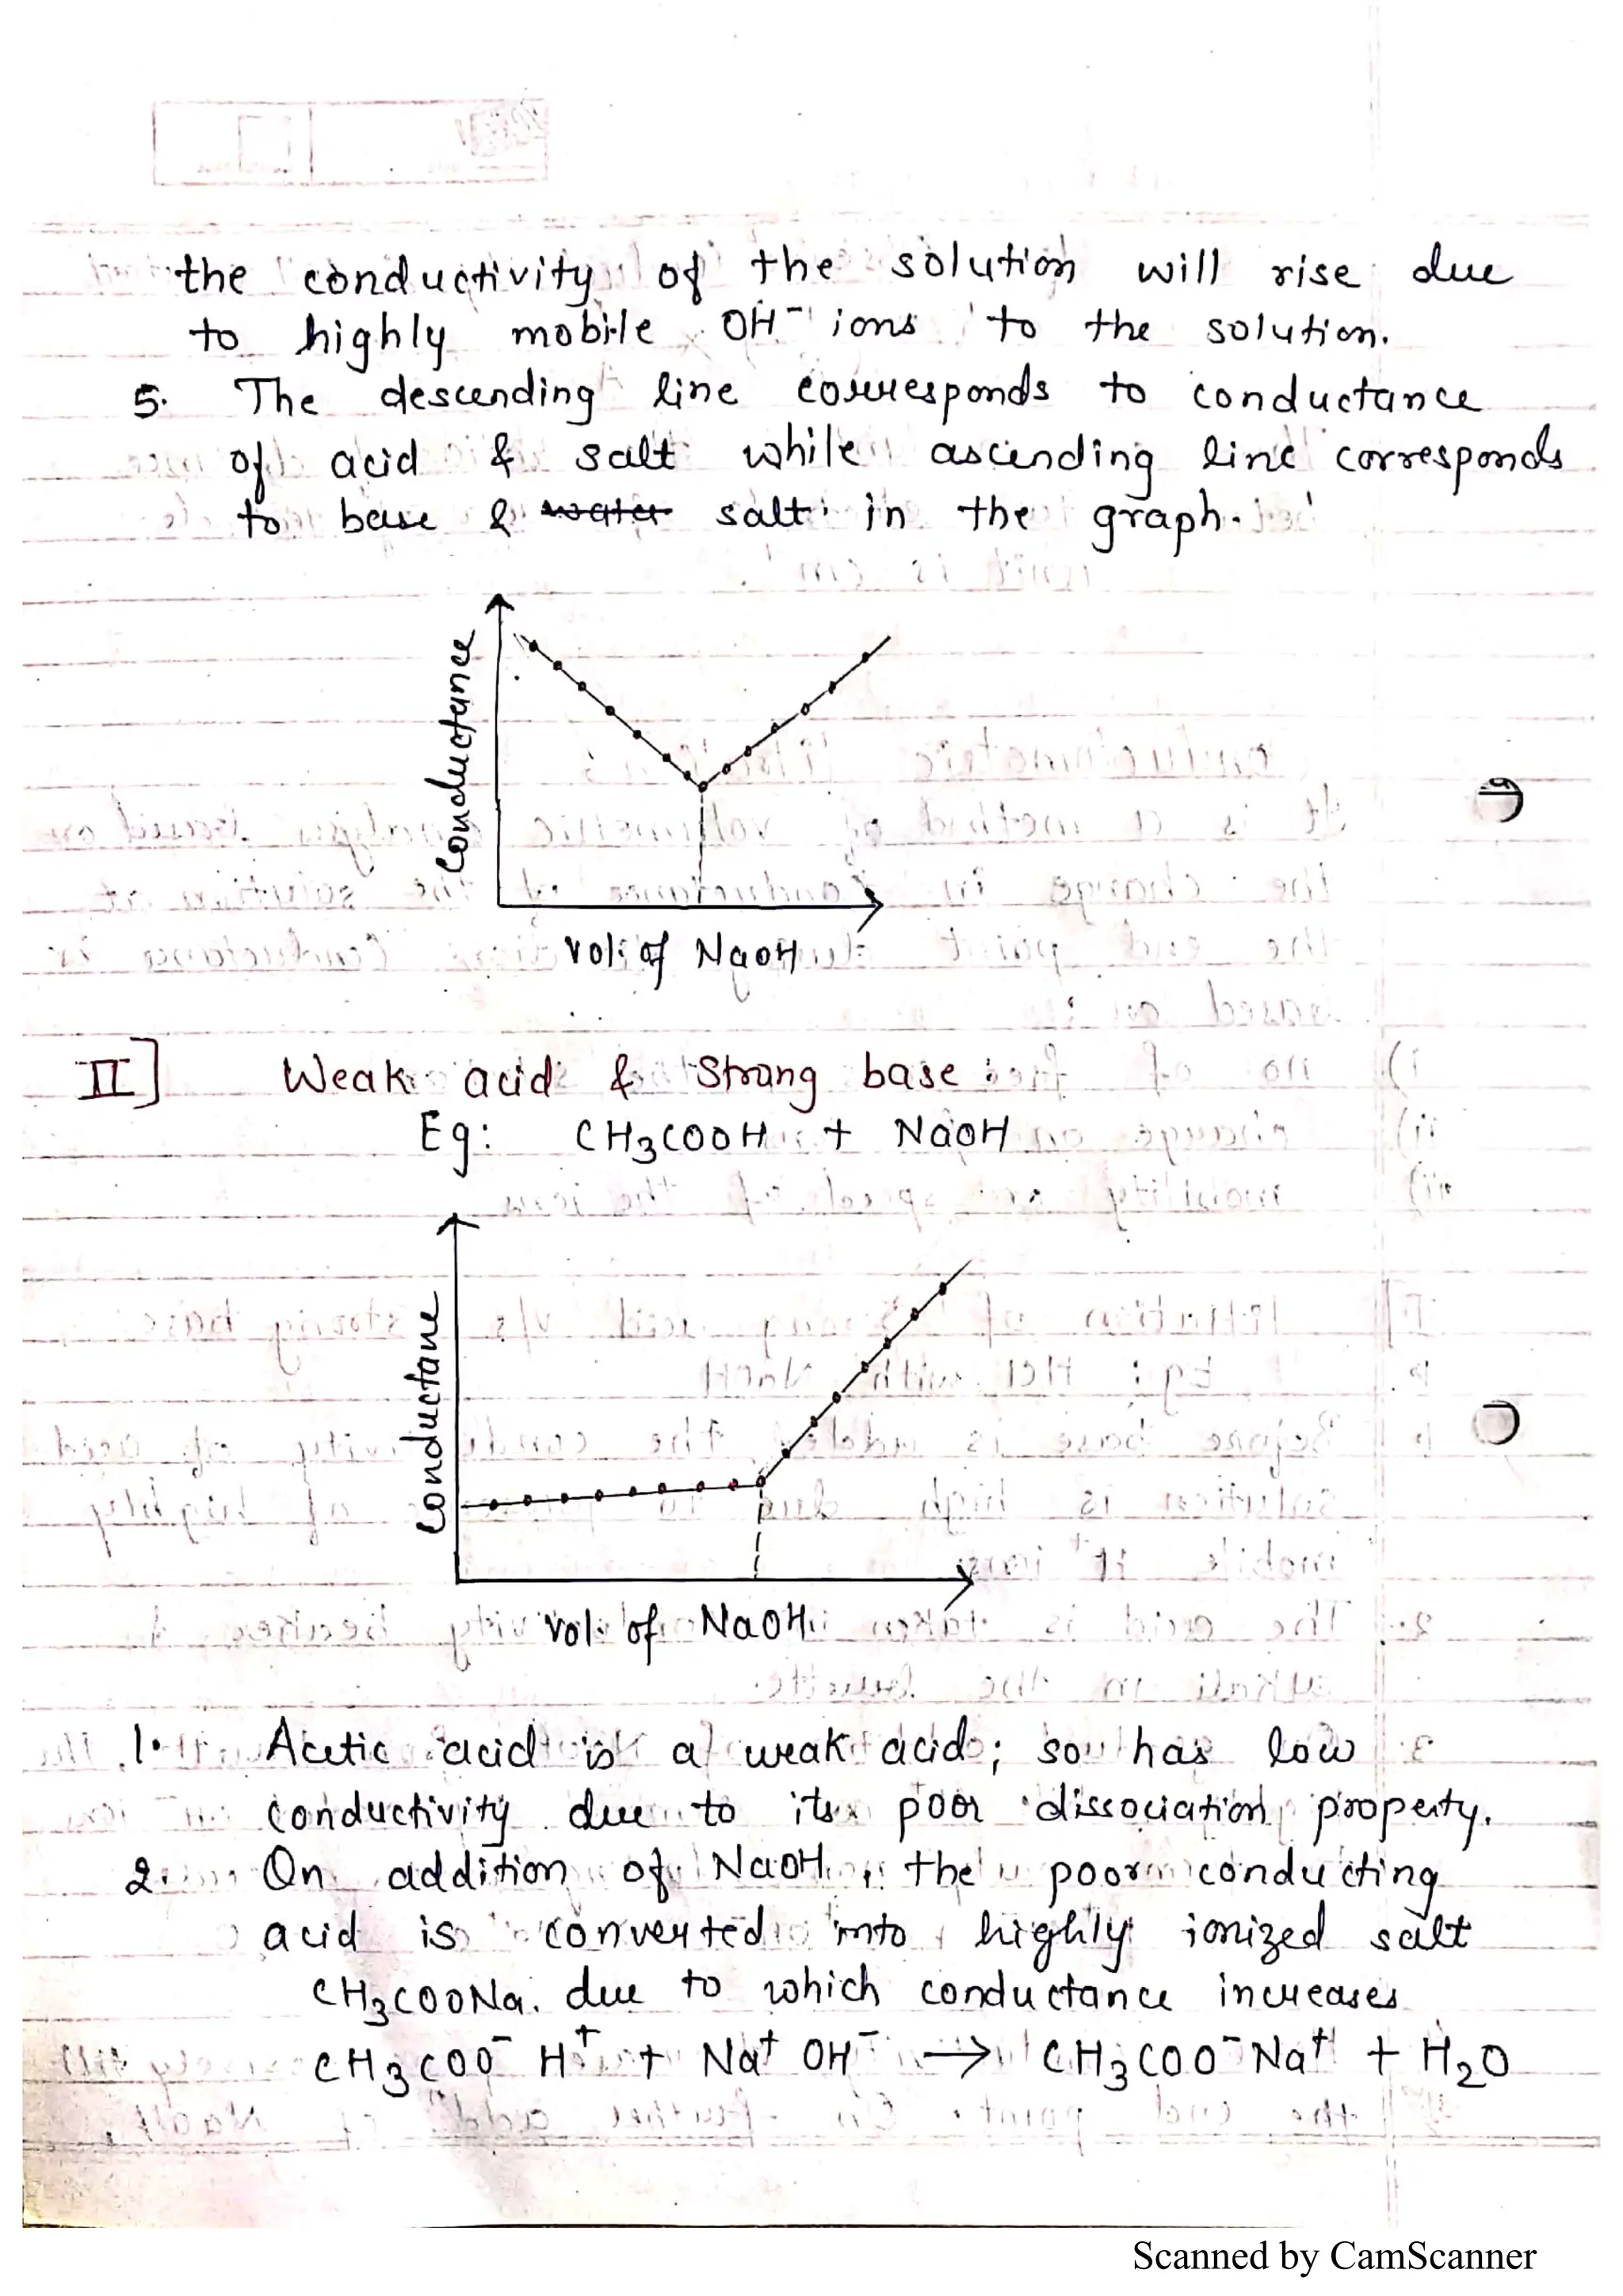 the conductivity of the solution will rise due
to highly mobile OH⁻ ions to the solution.
5. The descending line corresponds to conductance
of acid & salt while ascending line corresponds
to base & ~~water~~ salt in the graph.
Conductance
vol. of NaOH
II] Weak acid & Strong base
Eg: CH₃COOH + NaOH
Conductane
Vol. of NaOH
1. Acetic acid is a weak acid; so has low
conductivity due to its poor dissociation property.
2. On addition of NaOH, the poor conducting
acid is converted into highly ionized salt
CH₃COONa. due to which conductance increases
CH₃COO⁻ H⁺ + Na⁺ OH⁻ → CH₃COO⁻ Na⁺ + H₂O
Scanned by CamScanner